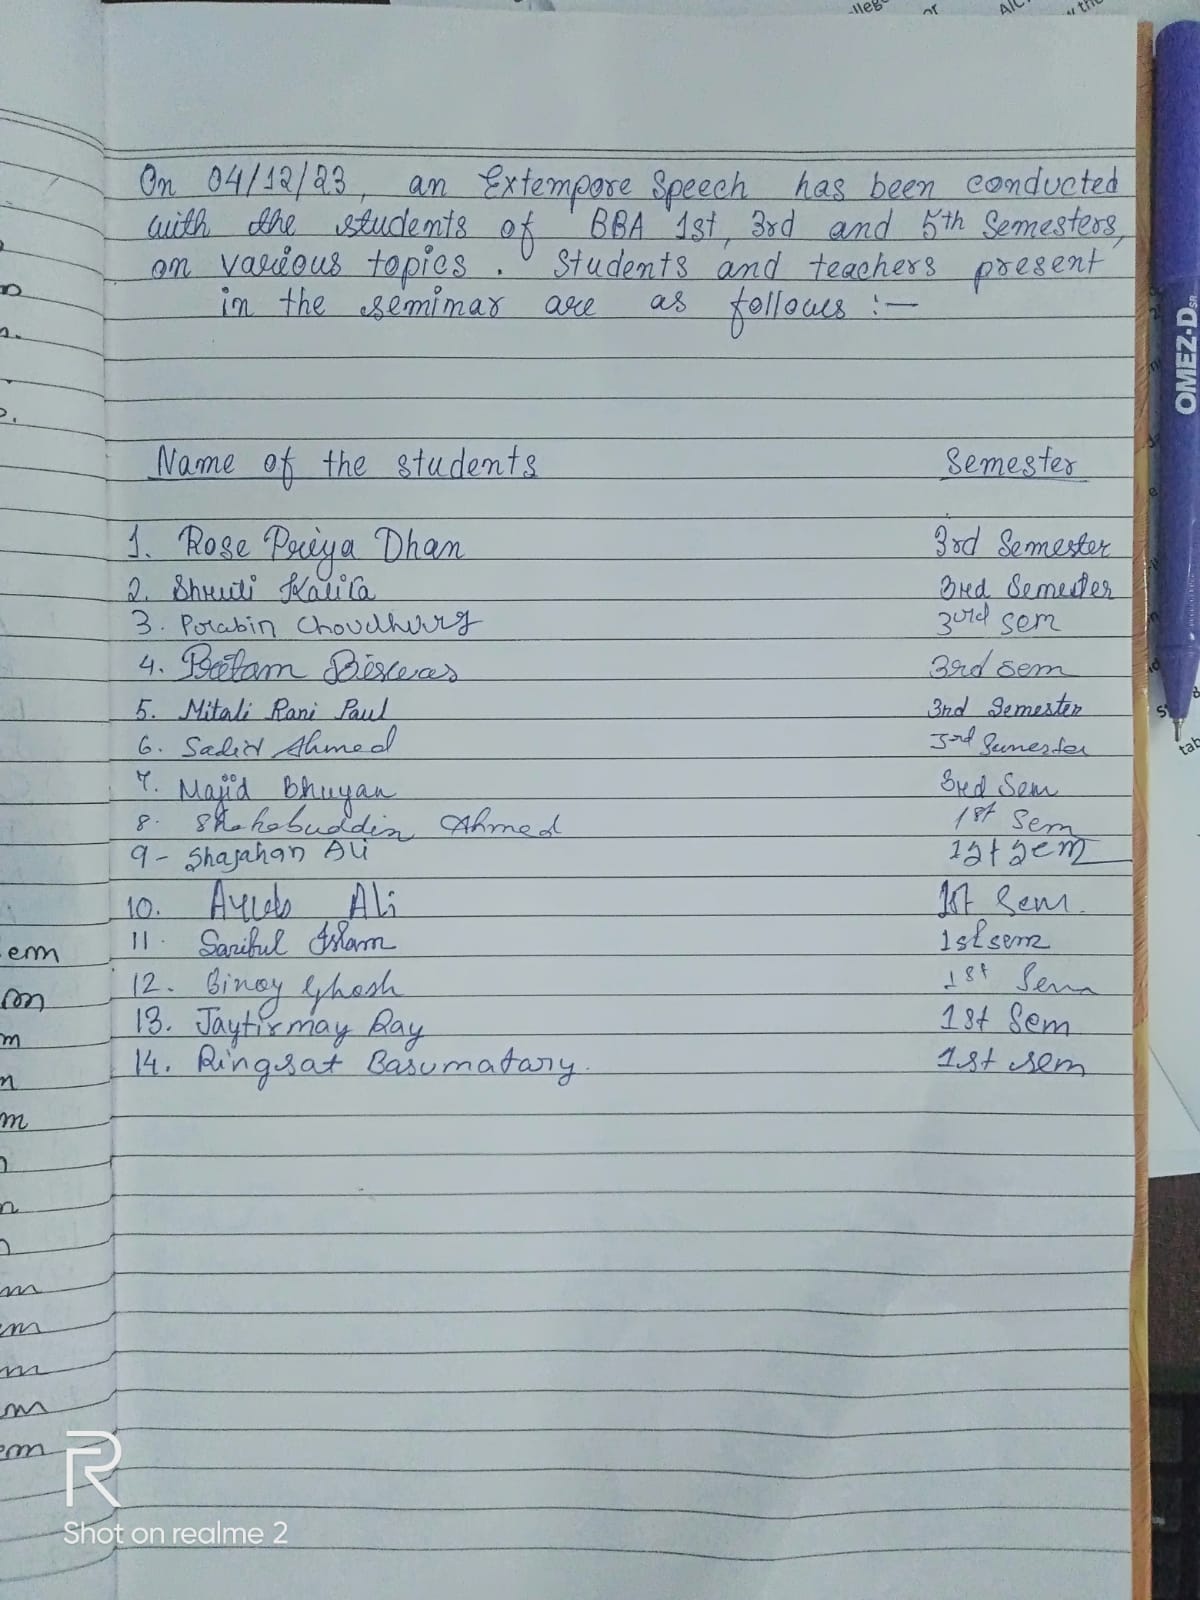 On 04/12/23, an Extempore Speech has been conducted
with the students of BBA 1st, 3rd and 5th Semesters,
on various topics. Students and teachers present
in the seminar are as follows :—
Name of the students Semester
1. Rose Priya Dhan 3rd Semester
2. Shruti Kalita 3rd Semester
3. Prabin Choudhury 3rd sem
4. Pritam Biswas 3rd sem
5. Mitali Rani Paul 3rd Semester
6. Sadir Ahmed 3rd Semester
7. Majid Bhuyan 3rd Sem
8. Shahabuddin Ahmed 1st Sem
9- Shajahan Ali 1st sem
10. Ayub Ali 1st Sem.
11. Sariful Islam 1st sem
12. Binoy Ghosh 1st Sem
13. Jaytirmay Ray 1st Sem
14. Ringsat Basumatary. 1st sem
em
m
m
m
em
m
m
em
OMEZ-D SR
tab
R
Shot on realme 2